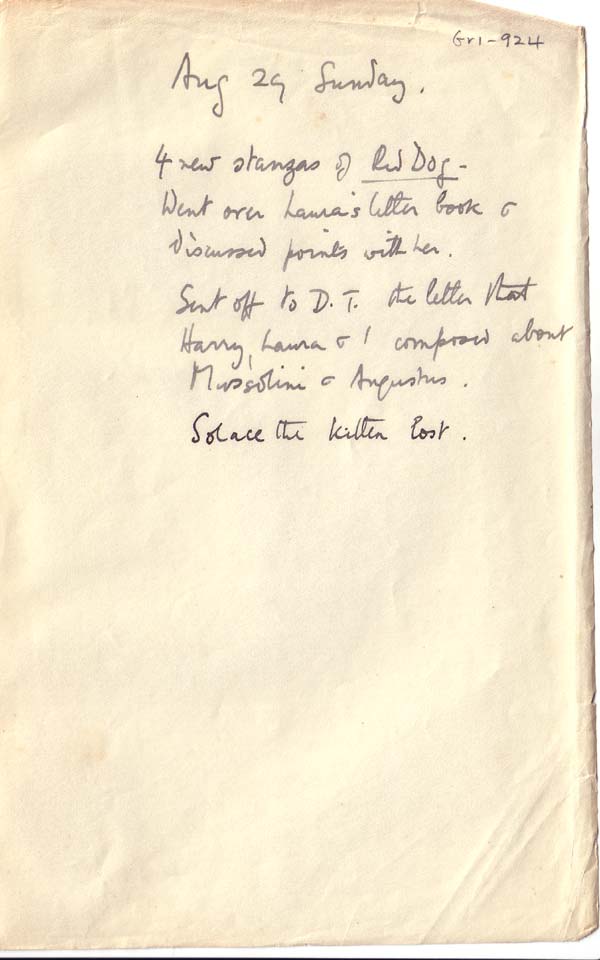 Gr1-924
Aug 29 Sunday.
4 new stanzas of Red Dog-
Went over Laura's letter book &
discussed points with her.
Sent off to D.T. the letter that
Harry, Laura & I composed about
Mussolini & Augustus.
Solace the kitten lost.